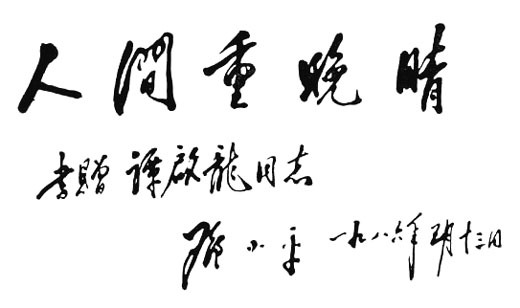 人間重晚晴
書贈 譚啟龍同志
鄧小平 一九八六年月十三日